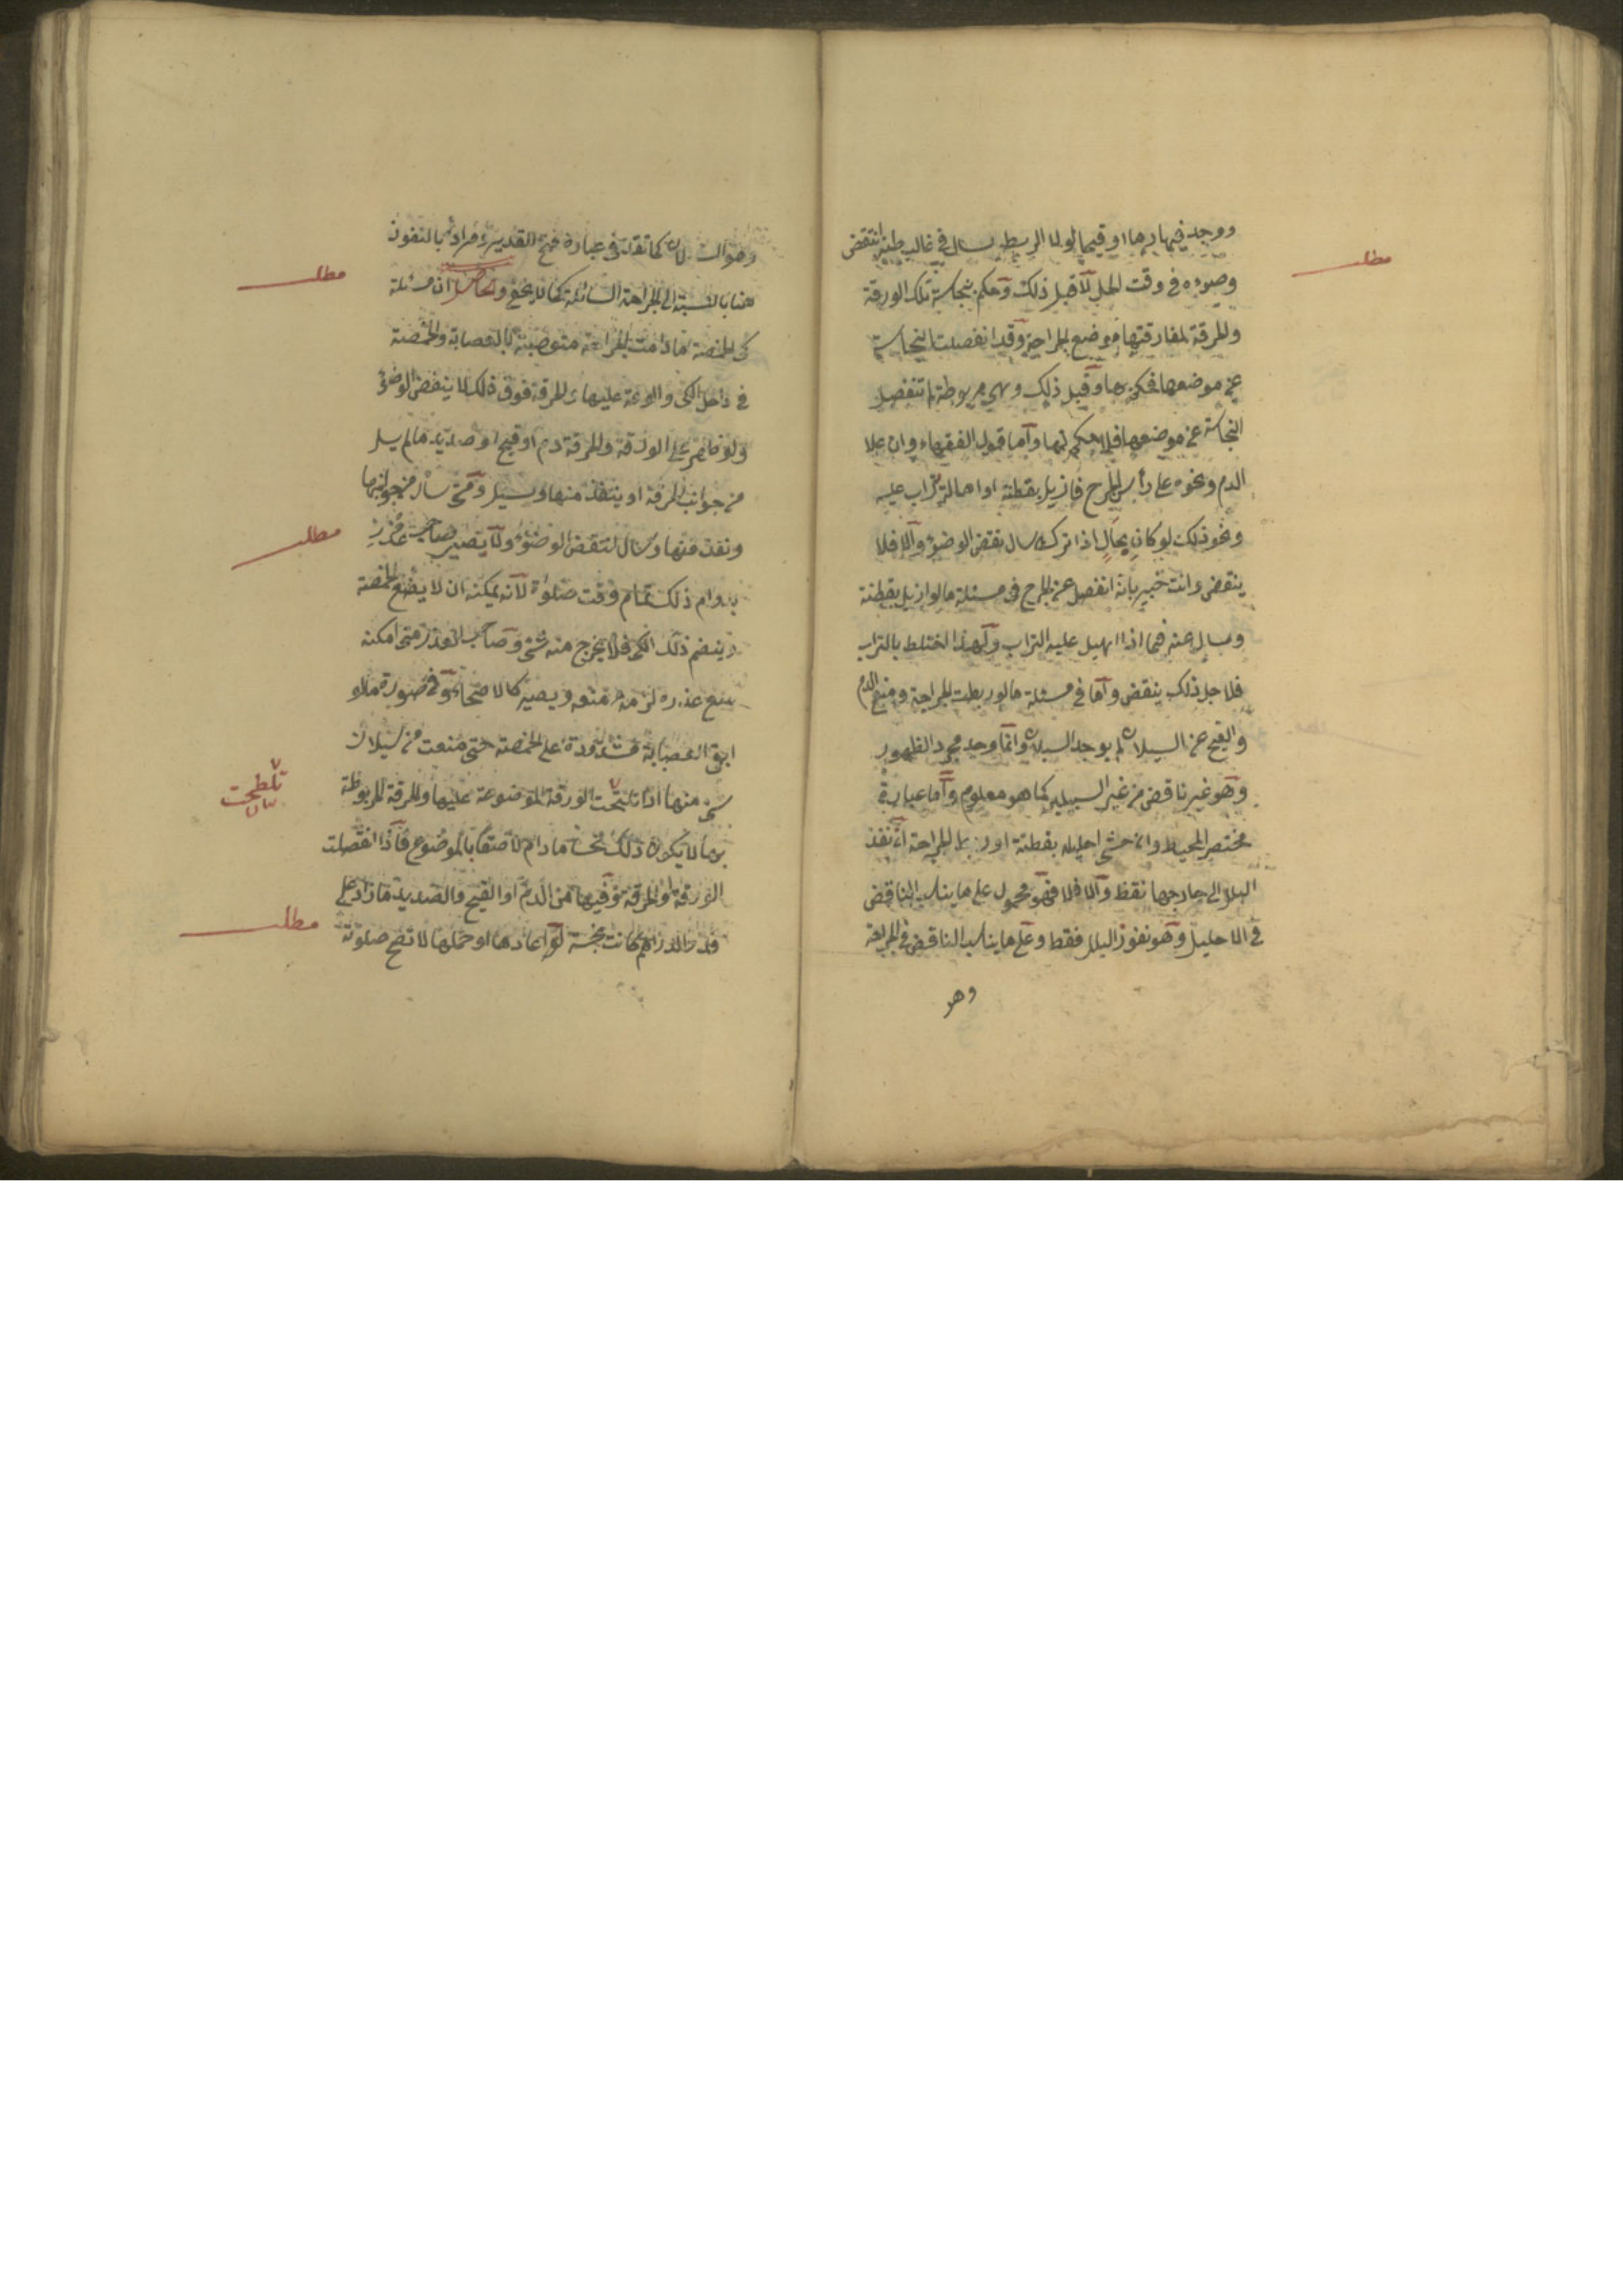 ووجد فيها دما او قيحا لولا الربط لسال في غالب ظنه انتقض
مطلب
وضوءه في وقت الحل لا قبل ذلك وحكم بنجاسة تلك الورقة
والخرقة لمفارقتها موضع الجراحة وقد انفصلت النجاسة
عن موضعها فحكم بها وقبل ذلك وهي مربوطة لم تنفصل
النجاسة عن موضعها فلا حكم لها وأما قول الفقهاء وان علا
الدم ونحوه على رأس الجرح فازيل بقطنة او اهالة تراب عليه
ونحو ذلك لو كان بحال اذا ترك سال نقض الوضوء والا فلا
ينقض وانت خبير بانه انفصل عن الجرح في مسئلة ما لو ازيل بقطنة
وسال عنه فيما اذا اهيل عليه التراب ولهذا اختلط بالتراب
فلاجل ذلك ينقض وأما في مسئلة ما لو ربطت الجراحة ومنع الدم
والقيح عن السيلان لم يوجد السيلان وانما وجد مجرد الظهور
وهو غير ناقض من غير السبيلين كما هو معلوم وأما عبارة
مختصر المحيط وان حشى احليله بقطنة او ربط الجراحة ان نفذ
البلل الى خارجها نقض والا فلا فهو محمول على ما يناسب الناقض
في الاحليل وهو نفوذ البلل فقط وعلى ما يناسب الناقض في الجراحة
وهو
وهو السيلان كما نقلته في عبارة فتح القدير ومراده بالنفوذ
هنا بالنسبة الى الجراحة السائلة كما لا يخفى والحاصل ان مسئلة
مطلب
كي الحمصة ما دامت الجراحة متعصبة بالعصابة والحمصة
في داخل الكي والورقة عليها والخرقة فوق ذلك لا ينقض الوضوء
ولو ظهر على الورقة والخرقة دم او قيح او صديد ما لم يسل
من جوانب الخرقة او ينفذ منها ويسيل ومتى سال من جوانبها
ونفذ منها وسال انتقض الوضوء ولا يصير صاحب عذر
مطلب
بدوام ذلك تمام وقت صلوة لانه يمكنه ان لا يضع الحمصة
وينضم ذلك الكي فلا يخرج منه شئ وصاحب العذر متى امكنه
منع عذره لزمه منعه ويصير كالاصحاء وفي صورة ما لو
ابقى العصابة مشدودة على الحمصة حتى منعت من سيلان
شئ منها اذا تلتحت الورقة الموضوعة عليها والخرقة المربوطة
تلطخت
بها لا يكون ذلك نجسا ما دام لاصقا بالموضوع فاذا انفصلت
الورقة والخرقة وفيها من الدم او القيح والصديد ما زاد على
قدر الدرهم كانت نجسة لو اعادها او حملها لا تصح صلوته
مطلب